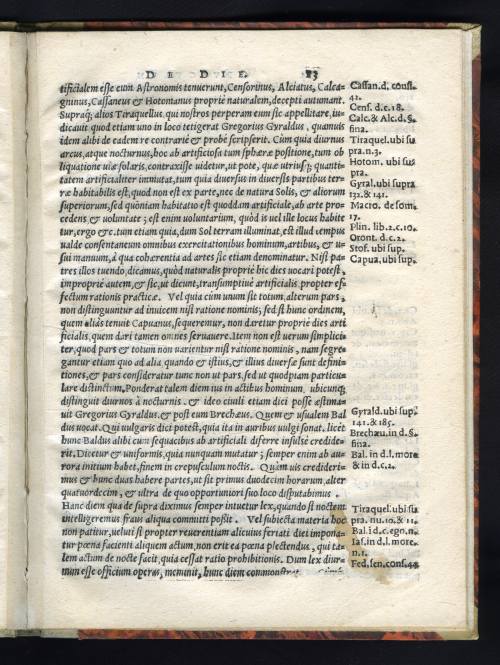 D E   D I E.   83
tificialem esse cum Astronomis tenuerunt, Censorinus, Alciatus, Calca-
gninus, Cassaneus & Hotomanus propriè naturalem, decepti autumant.
Supraq; alios Tiraquellus, qui nostros perperam eum sic appellitare, iu-
dicauit quod etiam uno in loco tetigerat Gregorius Gyraldus, quamuis
idem alibi de eadem re contrariè & probè scripserit. Cùm quia diurnus
arcus, atque nocturnus, hoc ab artificiosa tum sphæræ positione, tum ob
liquatione uiæ solaris, contraxisse uidetur, ut pote, quæ utriusq; quanti-
tatem artificialiter immutat, tum quia diuersus in diuersis partibus ter-
ræ habitabilis est, quod non est ex parte, nec de natura Solis, & aliorum
superiorum, sed quòniam habitatio est quoddam artificiale, ab arte pro
cedens & uoluntate; est enim uoluntarium, quòd is uel ille locus habite
tur, ergo &c. tum etiam quia, dum Sol terram illuminat, est illud tempus
ualde consentaneum omnibus exercitationibus hominum, artibus, & u-
sui manuum, à qua cohærentia ad artes sic etiam denominatur. Nisi pa-
tres illos tuendo, dicamus, quòd naturalis propriè hic dies uocari potest,
impropriè autem, & sic, ut dicunt, transumptiuè artificialis propter ef-
fectum rationis practicæ. Vel quia cùm unum sit totum, alterum pars,
non distinguuntur ad inuicem nisi ratione nominis; sed si hunc ordinem,
quem aliàs tenuit Capuanus, sequeremur, non daretur propriè dies arti
ficialis, quem dari tamen omnes seruauere. Item non est uerum simplici-
ter, quod pars & totum non uarientur nisi ratione nominis, nam segre-
gantur etiam quo ad alia, quando & istius, & illius diuersæ sunt defini-
tiones, & pars consideratur tunc non ut pars, sed ut quodpiam particu-
lare distinctum. Ponderat talem diem ius in actibus hominum, ubicunq;
distinguit diurnos à nocturnis. & ideo ciuili etiam dici posse æstima-
uit Gregorius Gyraldus, & post eum Brechæus. Quem & usualem Bal
dus uocat. Qui uulgaris dici potest, quia ita in auribus uulgi sonat, licèt
hunc Baldus alibi cum sequacibus ab artificiali differre insulsè credide-
rit. Dicetur & uniformis, quia nunquam mutatur; semper enim ab au-
rora initium habet, finem in crepusculum noctis. Quàm uis credideri-
mus & hunc duas habere partes, ut sit primus duodecim horarum, alter
quatuordecim, & ultra de quo opportuniori suo loco disputabimus.
Hanc diem qua de supra diximus semper intuetur lex, quando si noctem
intelligeremus fraus aliqua committi possit. Vel subiecta materia hoc
non patitur, ueluti si propter reuerentiam alicuius feriati diei impona-
tur pœna facienti aliquem actum, non erit ea pœna plectendus, qui ta-
lem actum de nocte facit, quia cessat ratio prohibitionis. Dum lex diur-
num esse officium operas, meminit, hunc diem commonstrat.
Cassan. d. consi.
42.
Cens. d. c. 18.
Calc. & Alc. d. §.
fina.
Tiraquel. ubi su
pra. n. 3.
Hotom. ubi su
pra.
Gyral. ubi supra
132. & 141.
Macro. de som.
17.
Plin. lib. 2. c. 10.
Oront. d. c. 2.
Stof. ubi sup.
Capua. ubi sup.
Gyrald. ubi sup.
141. & 185.
Brechæu. in d. §.
fina.
Bal. in d. l. more
& in d. c. 2.
Tiraquel. ubi su
pra. nu. 10. & 11.
Bal. i d. c. ego. n.
Ias. in d. l. more.
n. 1.
Fed. sen. cons. 44.